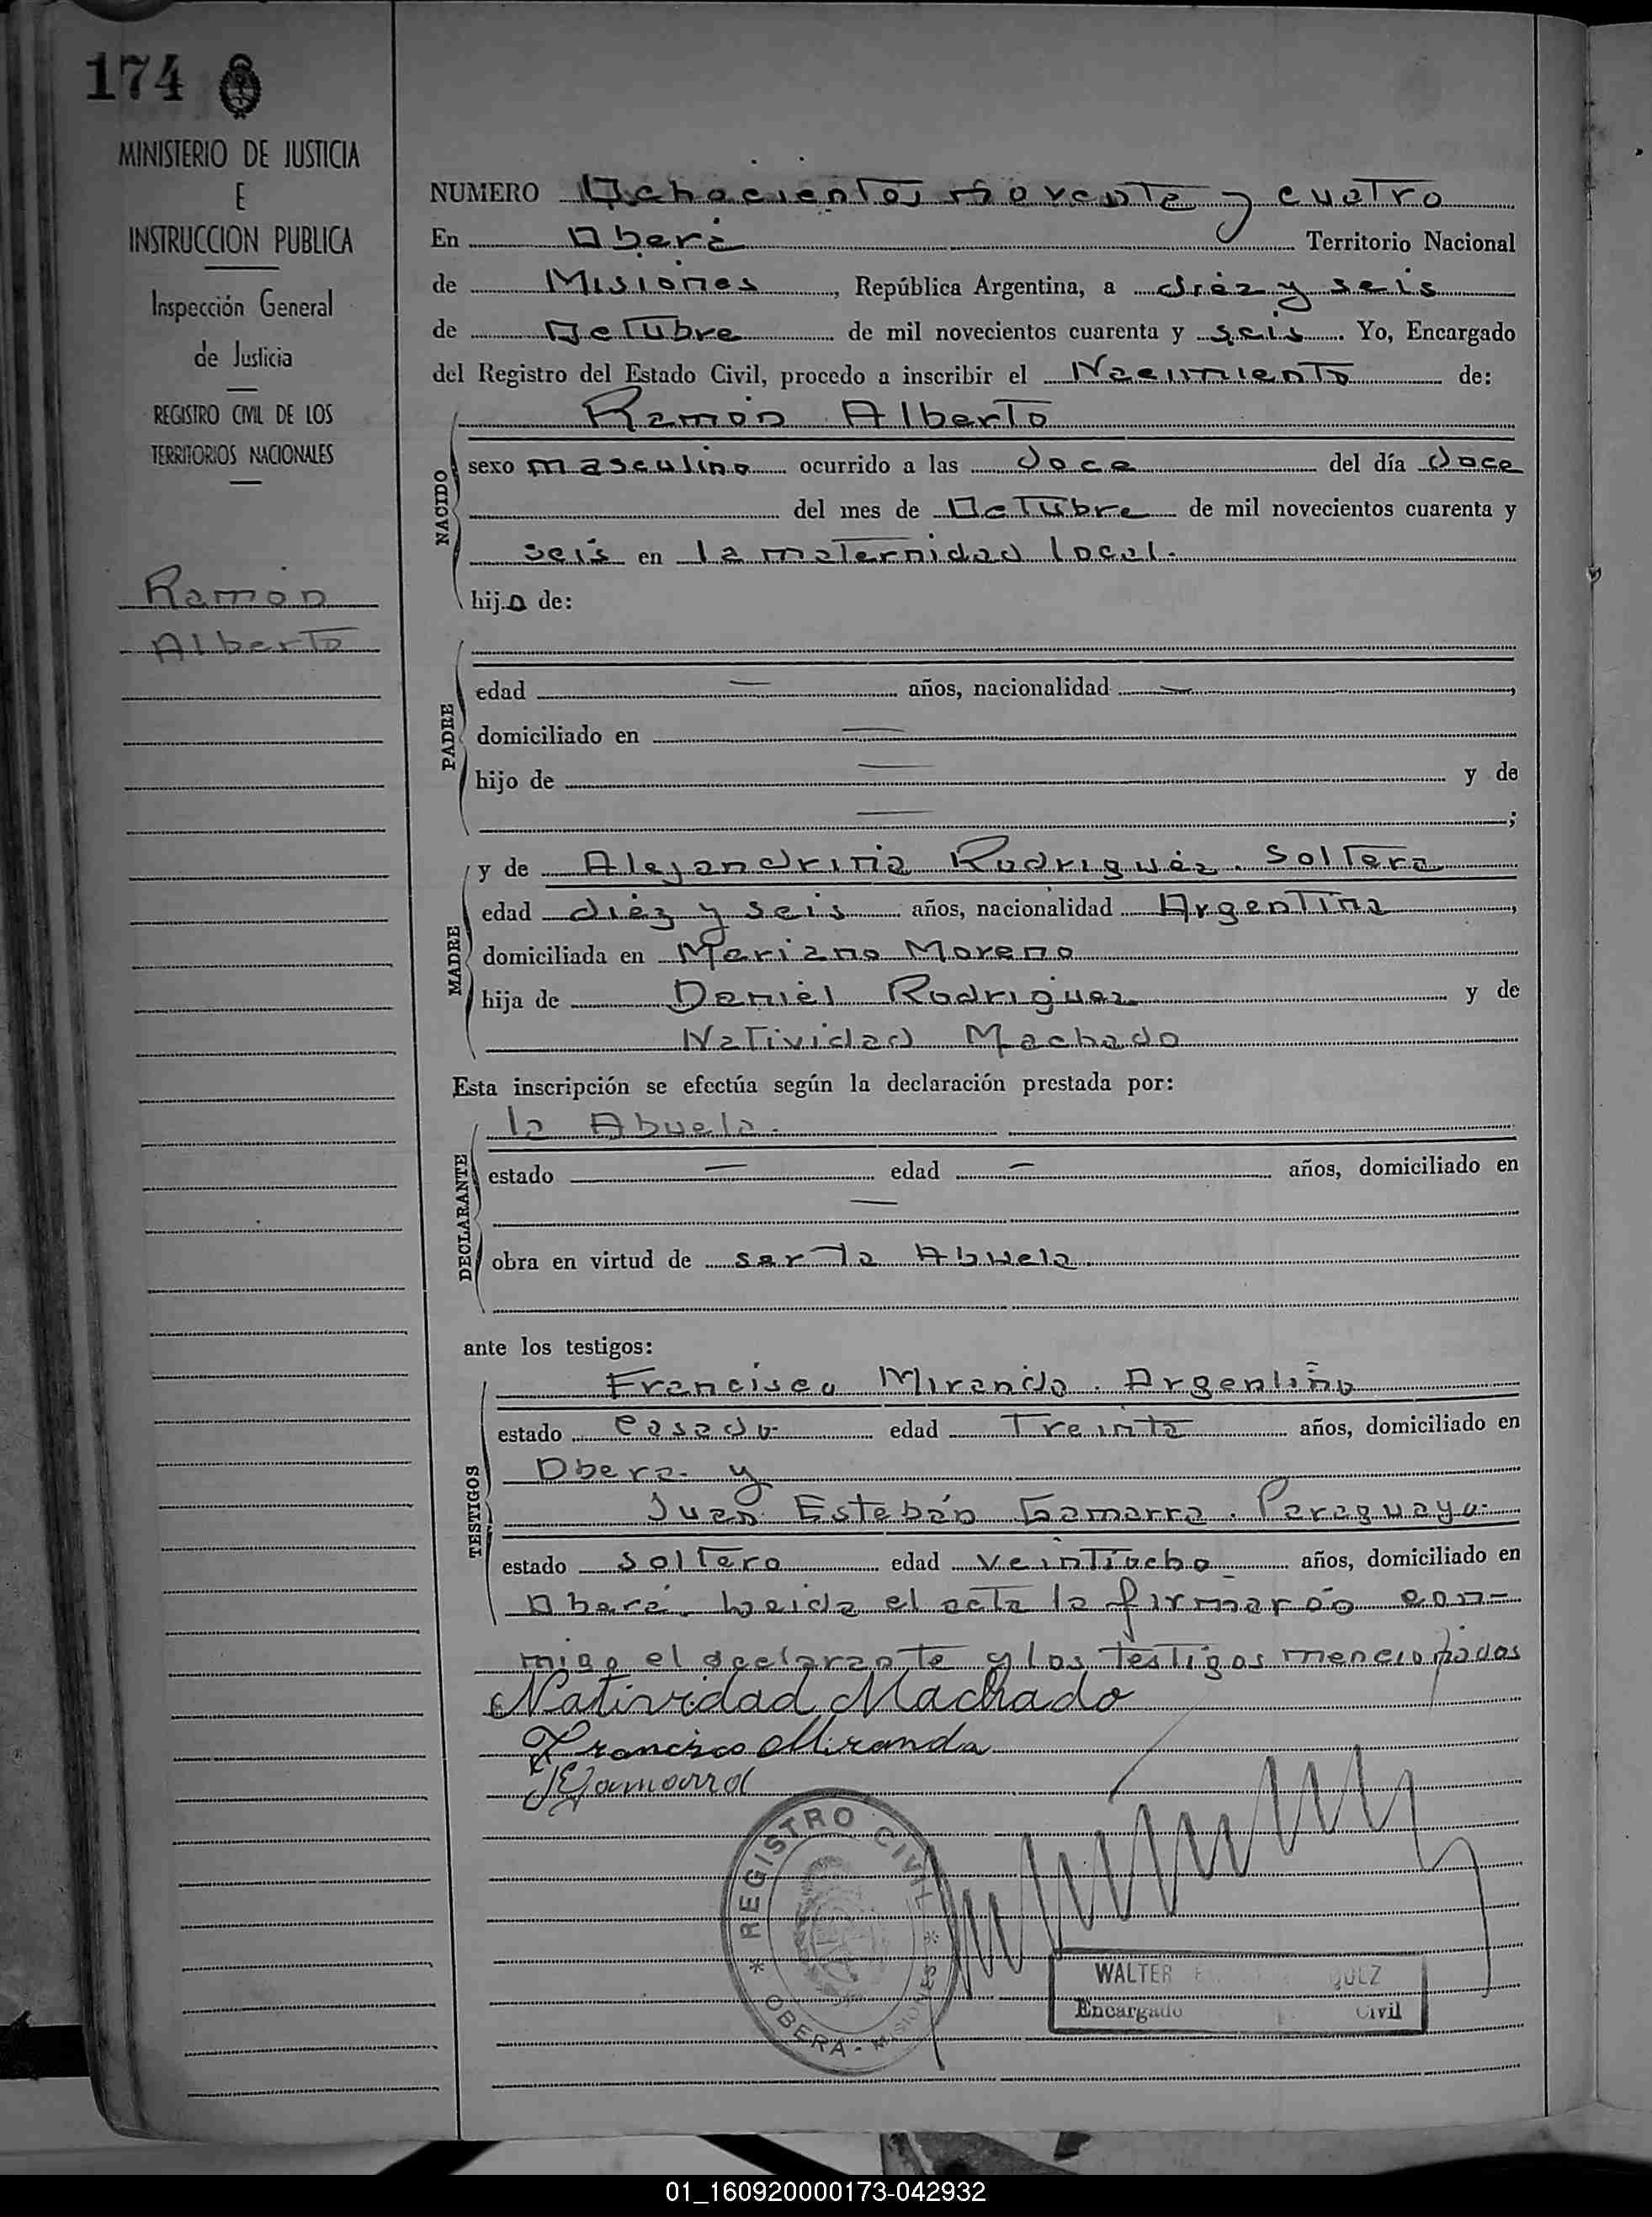 174
MINISTERIO DE JUSTICIA
E
INSTRUCCION PUBLICA
Inspección General
de Justicia
REGISTRO CIVIL DE LOS
TERRITORIOS NACIONALES
Ramón
Alberto
NUMERO Ochocientos noventa y cuatro
En Oberá Territorio Nacional
de Misiones, República Argentina, a diéz y seis
de Octubre de mil novecientos cuarenta y seis. Yo, Encargado
del Registro del Estado Civil, procedo a inscribir el Nacimiento de:
Ramón Alberto
NACIDO
sexo masculino ocurrido a las doce del día doce
del mes de Octubre de mil novecientos cuarenta y
seis en la maternidad local.
hijo de:
PADRE
edad — años, nacionalidad —,
domiciliado en —
hijo de — y de
—;
MADRE
y de Alejandrina Rodriguéz. Soltera
edad diéz y seis años, nacionalidad Argentina,
domiciliada en Mariano Moreno
hija de Daniel Rodriguez y de
Natividad Machado
Esta inscripción se efectúa según la declaración prestada por:
la Abuela.
DECLARANTE
estado — edad — años, domiciliado en
—
obra en virtud de ser la Abuela
ante los testigos:
Francisco Miranda. Argentino
TESTIGOS
estado Casado edad Treinta años, domiciliado en
Obera. y
Juan Estebán Gamarra. Paraguayo.
estado soltero edad veintiocho años, domiciliado en
Oberá. Leida el acta la firmarón con-
migo el declarante y los testigos mencionados
Natividad Machado
Francisco Miranda
JEGamarra
REGISTRO CIVIL
OBERA - MISIONES
WALTER
Encargado Civil
01_160920000173-042932